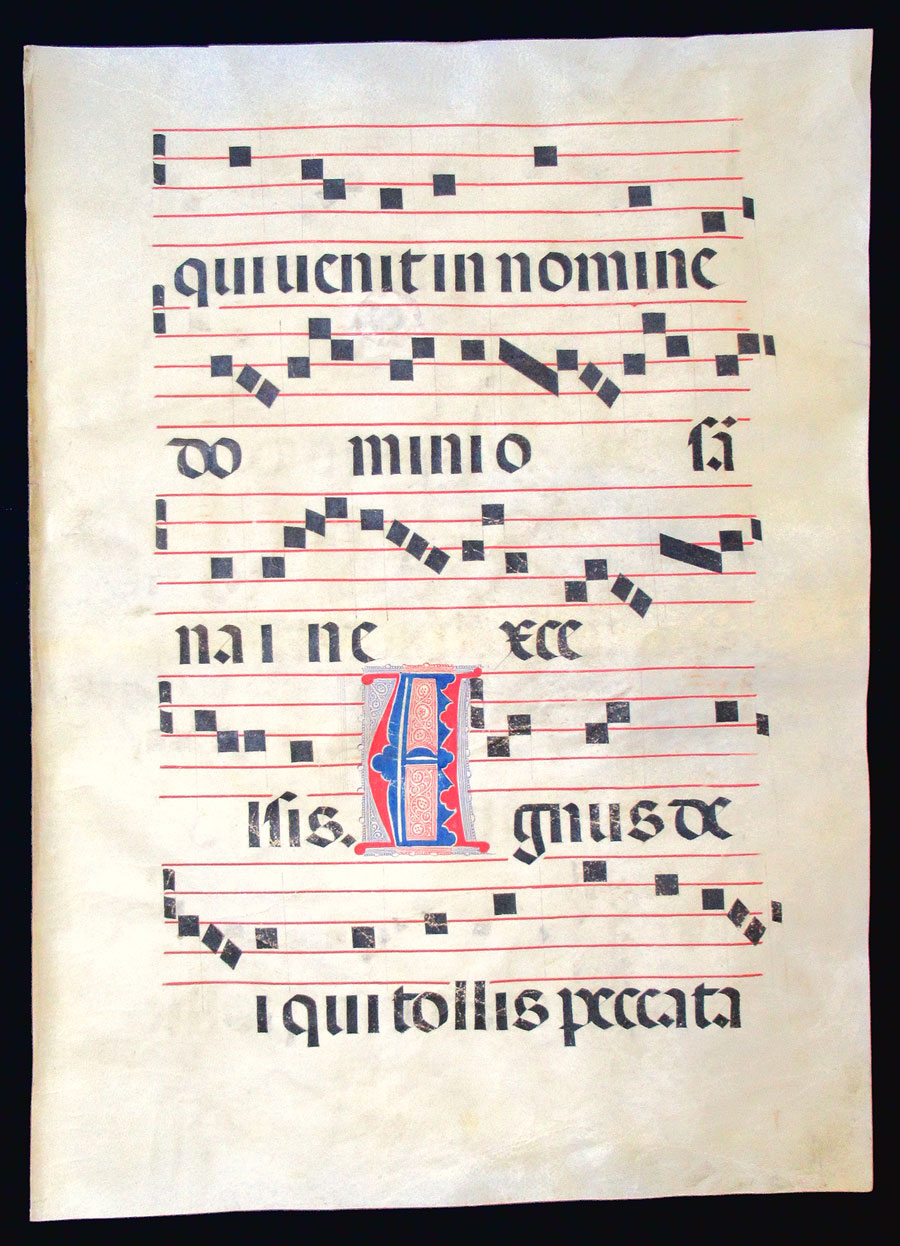 qui uenit in nomine
do mini o ſā
na i n e xce
lſis. Agnus de
i qui tollis peccata